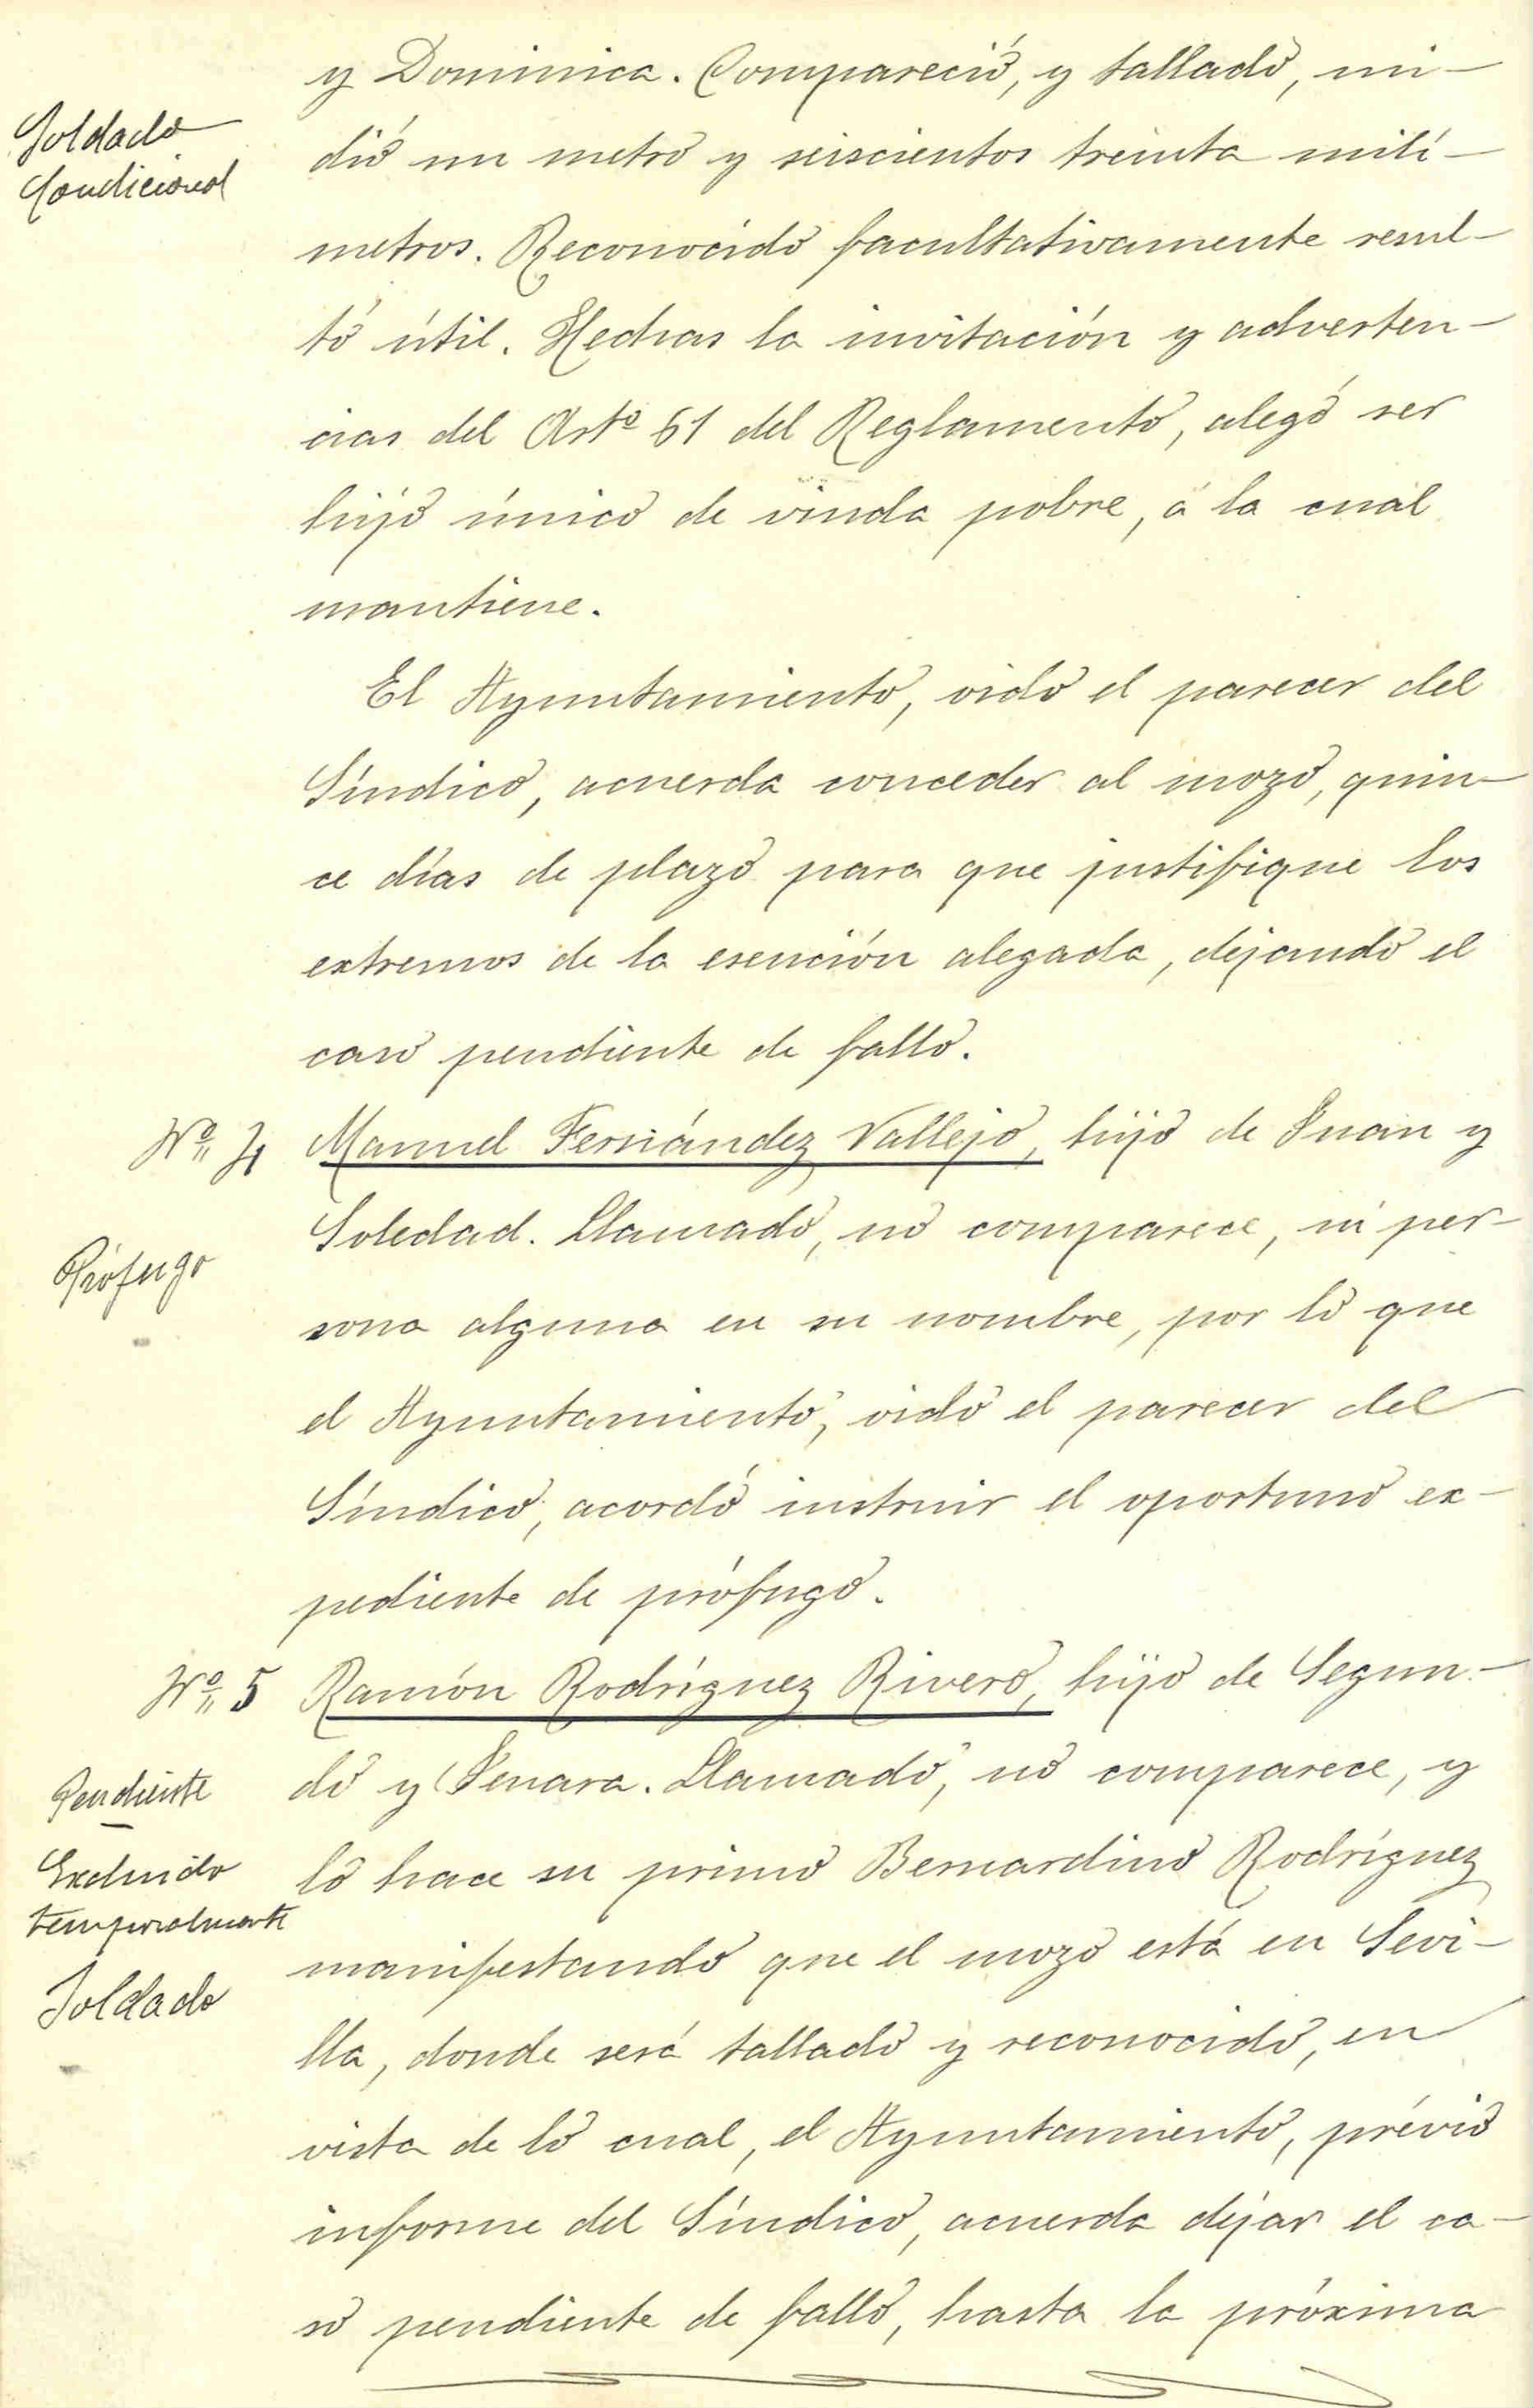 y Dominica. Compareció, y tallado, mi-
Soldado
dió un metro y seiscientos treinta milí-
Condicional
metros. Reconocido facultativamente resul-
tó útil. Hechas la invitación y adverten-
cias del Artº 61 del Reglamento, alegó ser
hijo único de viuda pobre, á la cual
mantiene.
El Ayuntamiento, oido el parecer del
Síndico, acuerda conceder al mozo, quin-
ce días de plazo para que justifique los
extremos de la esención alegada, dejando el
caso pendiente de fallo.
Nº 4 Manuel Fernández Vallejo, hijo de Juan y
Soledad. Llamado, no comparece, ni per-
Prófugo
sona alguna en su nombre, por lo que
el Ayuntamiento, oido el parecer del
Síndico, acordó instruir el oportuno ex-
pediente de prófugo.
Nº 5 Ramón Rodríguez Rivero, hijo de Segun-
Pendiente
do y Jenara. Llamado, no comparece, y
Excluido
lo hace su primo Bernardino Rodríguez
temporalmente
manifestando que el mozo está en Sevi-
Soldado
lla, donde será tallado y reconocido, en
vista de lo cual, el Ayuntamiento, prévio
informe del Síndico, acuerda dejar el ca-
so pendiente de fallo, hasta la próxima